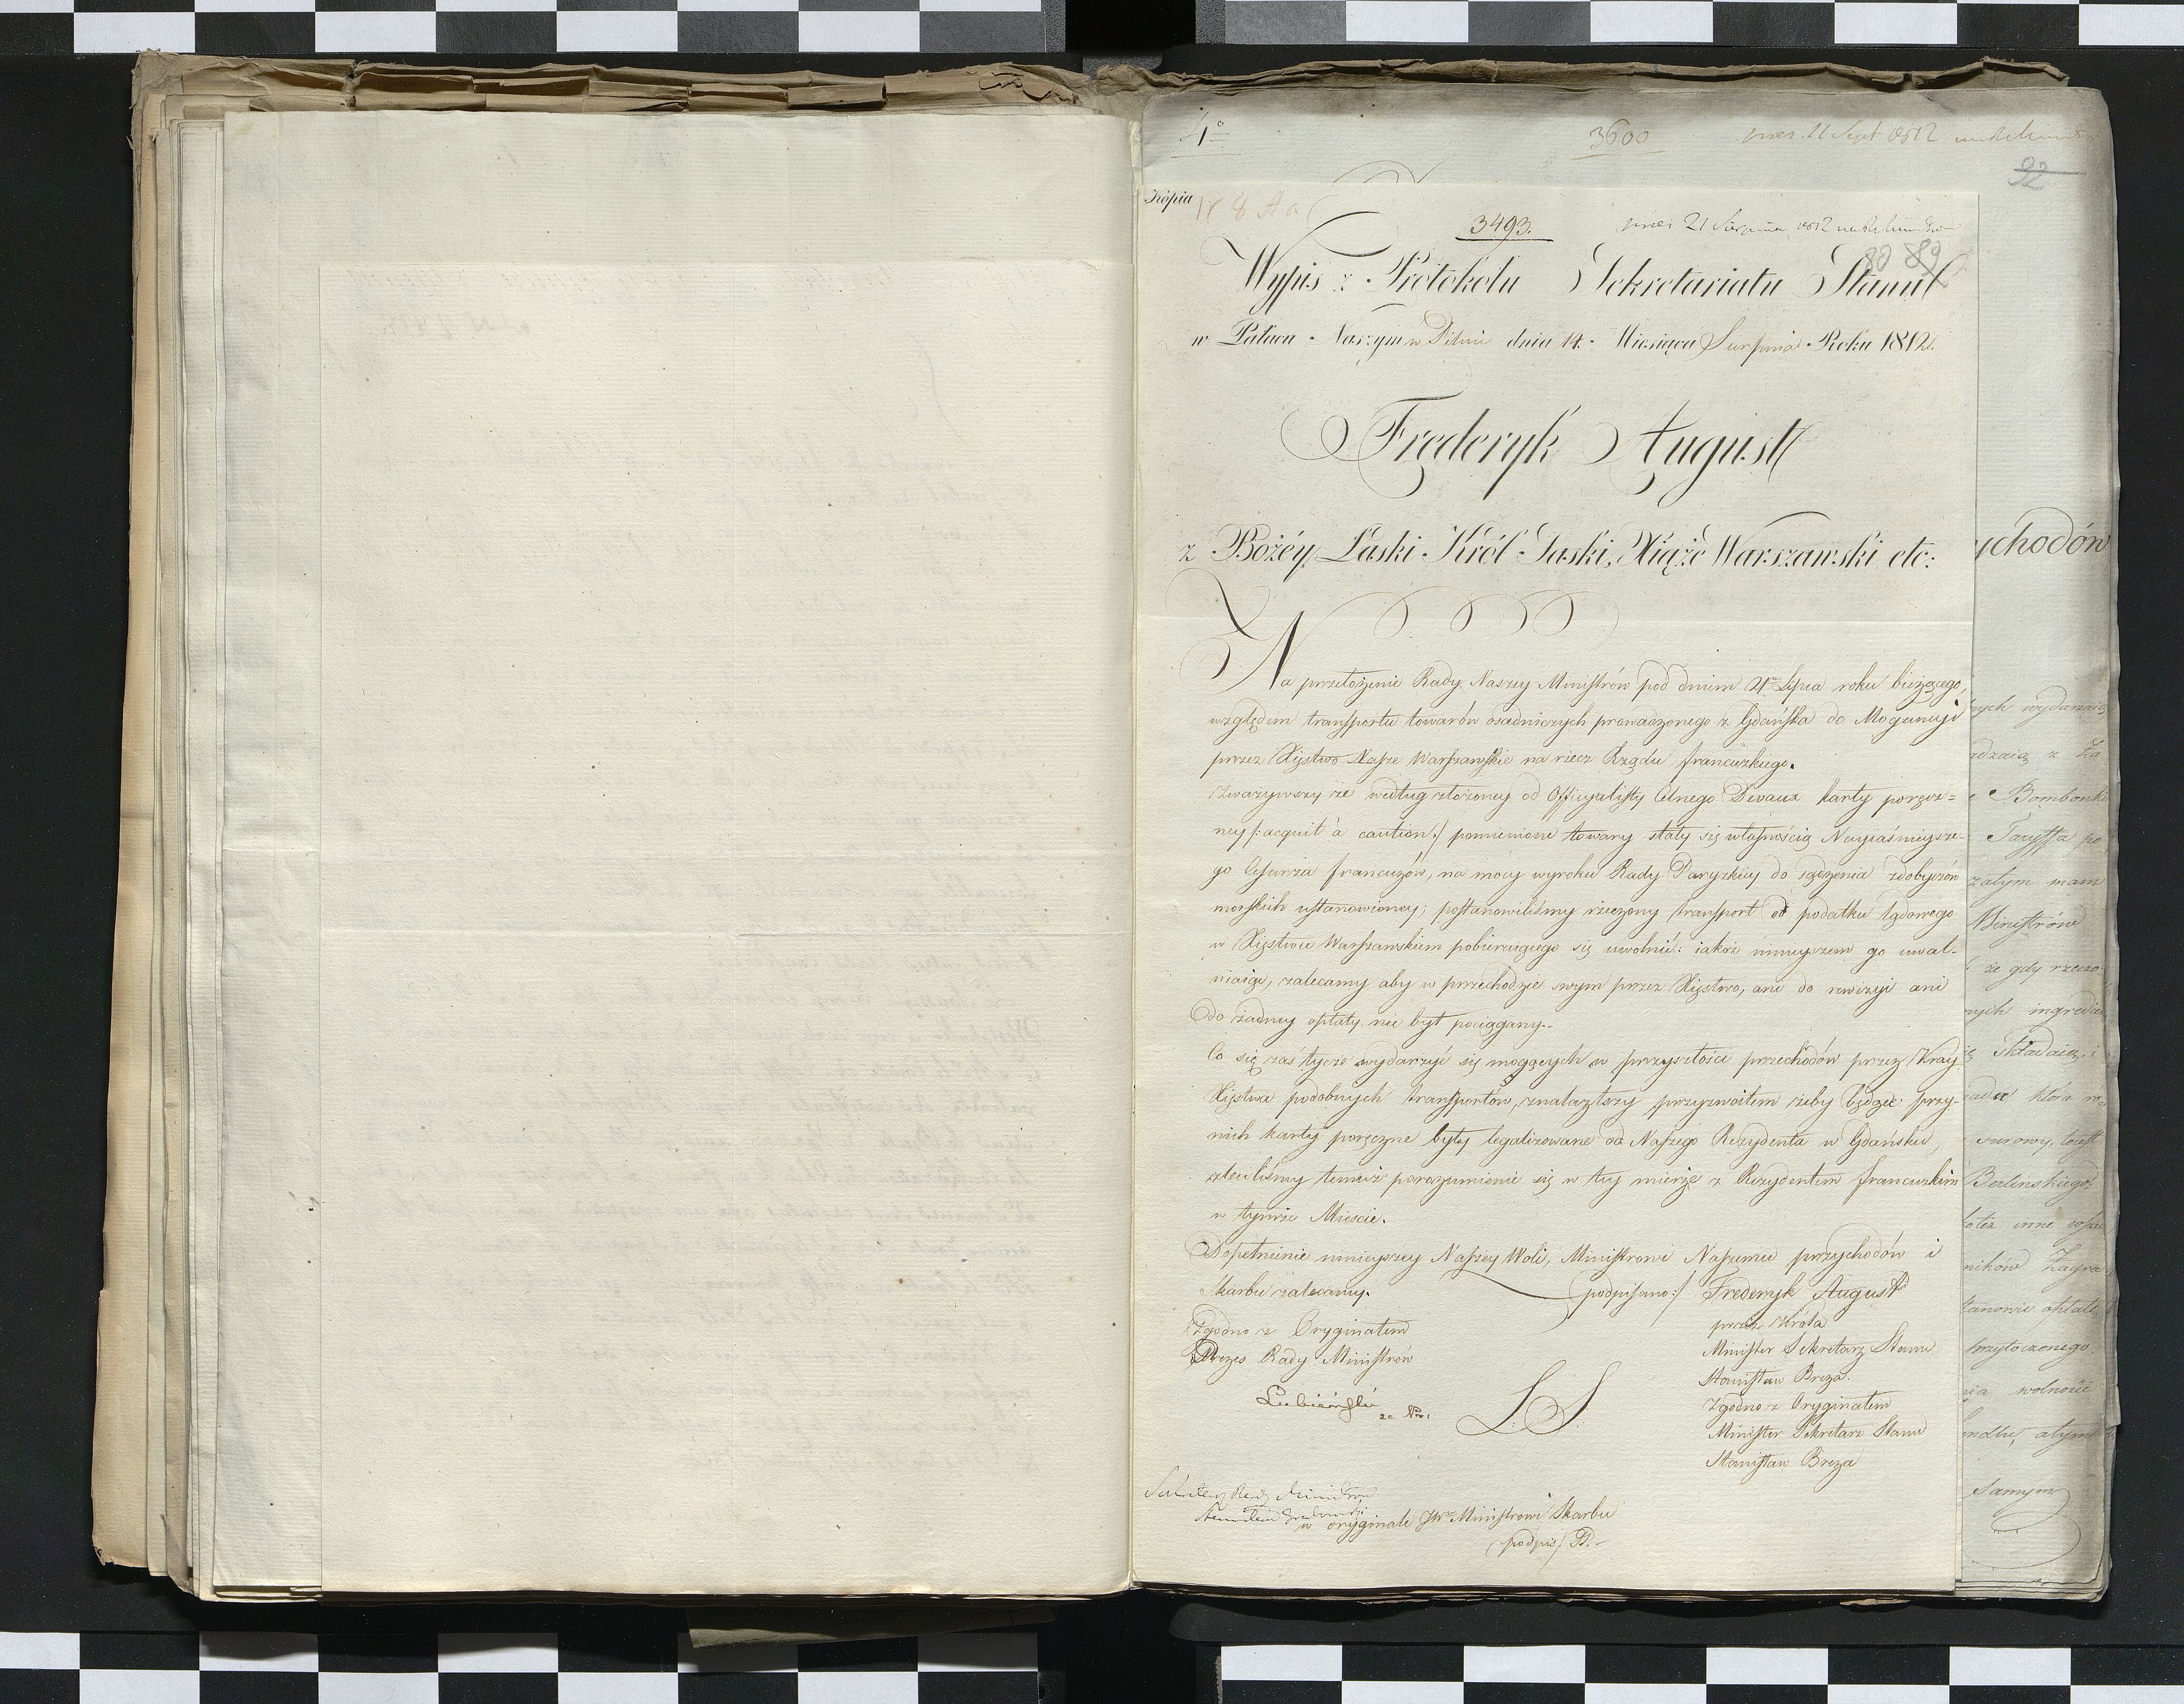 1º
3600
11 Sept 1812
92
Kópia
3493.
21 Sierpnia 1812
80 89
Wypis z Protokółu Sekretariatu Stanu
w Pałacu Naszym w Pilnic dnia 14. Miesiąca Sierpnia Roku 1812.
Frederyk August
z Bożéy Łaski Król Saski, Xiąże Warszawski etc:
Na przełożenie Rady Naszey Ministrów pod dniem 21 Lipca roku bieżącego,
względem transportu towarów osadniczych prowadzonego z Gdańska do Moguncyi
przez Xięstwo Nasze Warszawskie na rzecz Rządu francuzkiego.
Zważywszy że według złożoney od Officyalisty Celnego Devaux karty poręcz=
ney /: acquit à caution :/ pomienione towary stały się własnością Nayiaśnieysze-
go Cesarza francuzów, na mocy wyroku Rady Paryzkiey do sądzenia zdobyczów
morskich ustanowioney; postanowiliśmy rzeczony transport od podatku lądowego
w Xięstwie Warszawskim pobieraiącego się uwolnić: iakoż ninieyszem go uwal-
niaiąc, zalecamy aby w przechodzie swym przez Xięstwo, ani do rewizyi ani
do żadney opłaty nie był pociągany.-
Co się zaś tycze wydarzyć się mogących w przyszłości przechodów przez Kray
Xięstwa podobnych transportów, znalazłszy przyzwoitem żeby będące przy-
nich karty poręczne były legalizowane od Naszego Rezydenta w Gdańsku,
zleciliśmy temuż porozumienie się w tey mierze z Rezydentem francuzkim
w tymże Mieście.
Dopełnienie ninieyszey Naszey Woli, Ministrowi Naszemu przychodów i
Skarbu zalecamy.
(podpisano:/ Frederyk August
przez Króla
Minister Sekretarz Stanu
Stanisław Breza.
Zgodno z Oryginałem
Minister Sekretarz Stanu
Stanisław Breza
Zgodno z Oryginałem
Prezes Rady Ministrów
Lubieński
L.S.
Sekretarz Rady Ministrów
w oryginale JW. Ministrowi Skarbu
(podpis/ B.-
ychodów
nych wydarzaią
adzaią z Za
Bombonki
Taryffa po
zatym mam
Ministrów
że gdy rzeczo
nych ingredi
Składaią, i
rada która
surowy, toiest
Berlinskiego
inne
ników Zagra
tanowie opłatę
przytoczonego
nia wolność
andlu, atym
samym